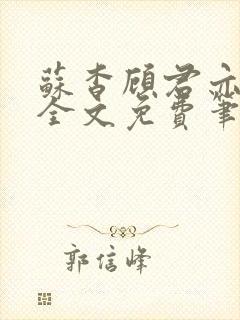 蘇杳顾君亦
全文免費筆
郭信峰